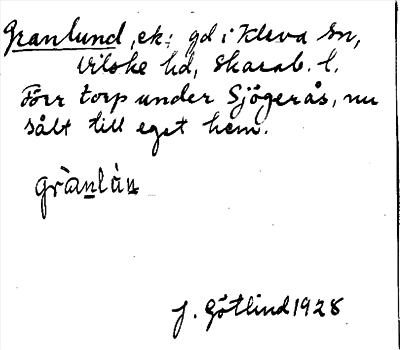 Granlund, ek; gd i Kleva sn,
Vilske hd, Skarab. l.
Förr torp under Sjögerås, nu
sålt till eget hem.
grànlùn
J. Götlind 1928